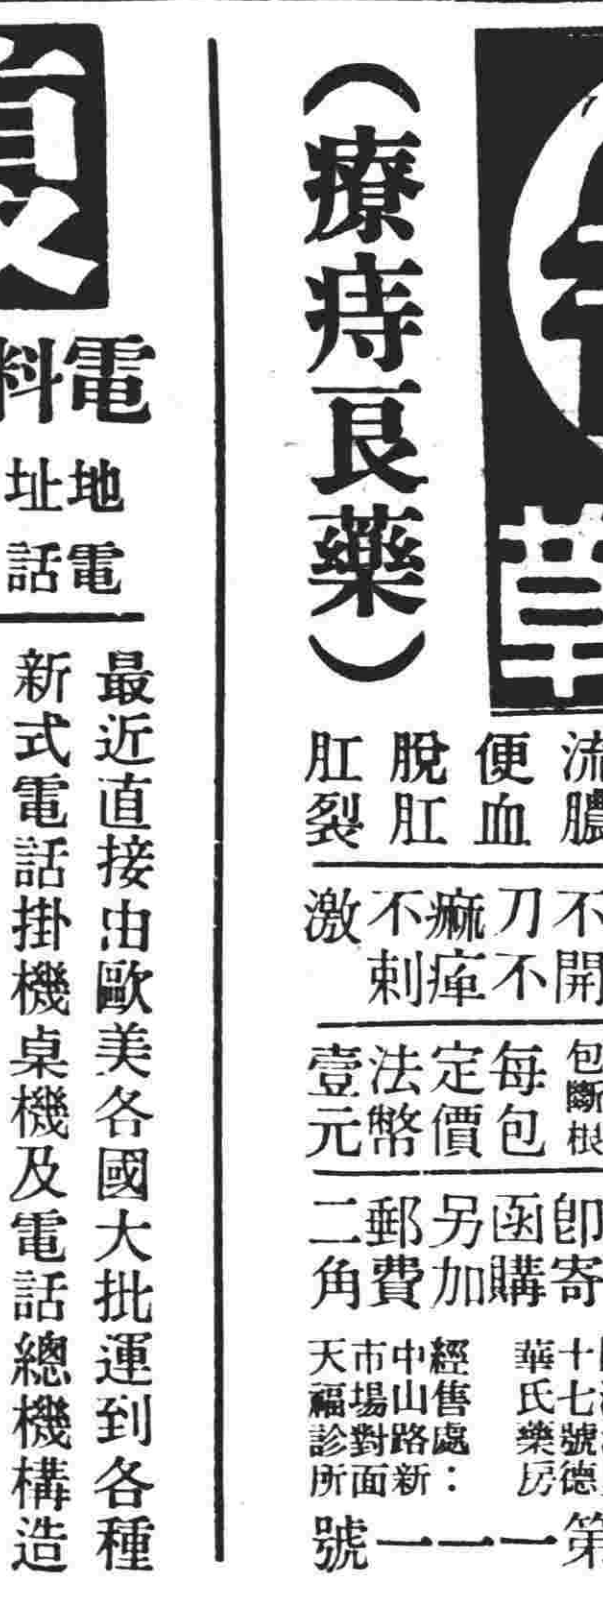 華
（療痔良藥）
流膿
便血
脫肛
肛裂
不開
刀不
痲痺
不刺
激
包斷根
每包
定價
法幣
壹元
卽寄
函購
另加
郵費
二角
十七號德
華氏藥房
經售處：
中山路新
市場對面
天福診所
第一一一號
電料
地址
電話
最近直接由歐美各國大批運到各種
新式電話掛機桌機及電話總機構造